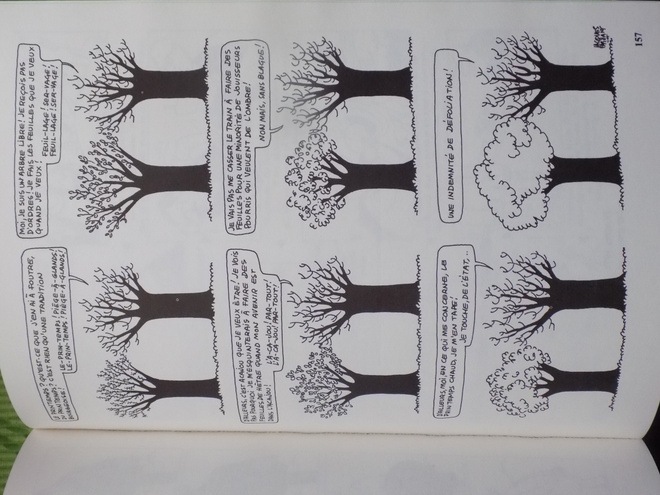 PRINTEMPS? QU'EST-CE QUE J'EN AI À FOUTRE,
PRINTEMPS? C'EST RIEN QU'UNE TRADITION
BOURGEOISE!
LE-PRIN-TEMPS! PIÈGE-À-GLANDS!
LE-PRIN-TEMPS! PIÈGE-À-GLANDS!
MOI, JE SUIS UN ARBRE LIBRE! JE REÇOIS PAS
D'ORDRES! JE FAIS LES FEUILLES QUE JE VEUX
QUAND JE VEUX!
FEUIL-LAGE! SER-VAGE!
FEUIL-LAGE! SER-VAGE!
D'AILLEURS, C'EST ACAJOU QUE JE VEUX ÊTRE! JE VOIS
PAS POURQUOI JE M'ESQUINTERAIS À FAIRE DES
FEUILLES DE HÊTRE QUAND MON AVENIR EST
DANS L'ACAJOU!
L'A-CA-JOU! PAR-TOUT!
L'A-CA-JOU! PAR-TOUT!
JE VAIS PAS ME CASSER LE TRAIN À FAIRE DES
FEUILLES POUR UNE MINORITÉ DE JOUISSEURS
POURRIS QUI VEULENT DE L'OMBRE!
NON MAIS, SANS BLAGUE!
D'AILLEURS, MOI, EN CE QUI ME CONCERNE, LE
PRINTEMPS CHAUD, JE M'EN TAPE!
JE TOUCHE, DE L'ÉTAT,...
UNE INDEMNITÉ DE DÉFOLIATION!
JACQUES
FAIZANT
157